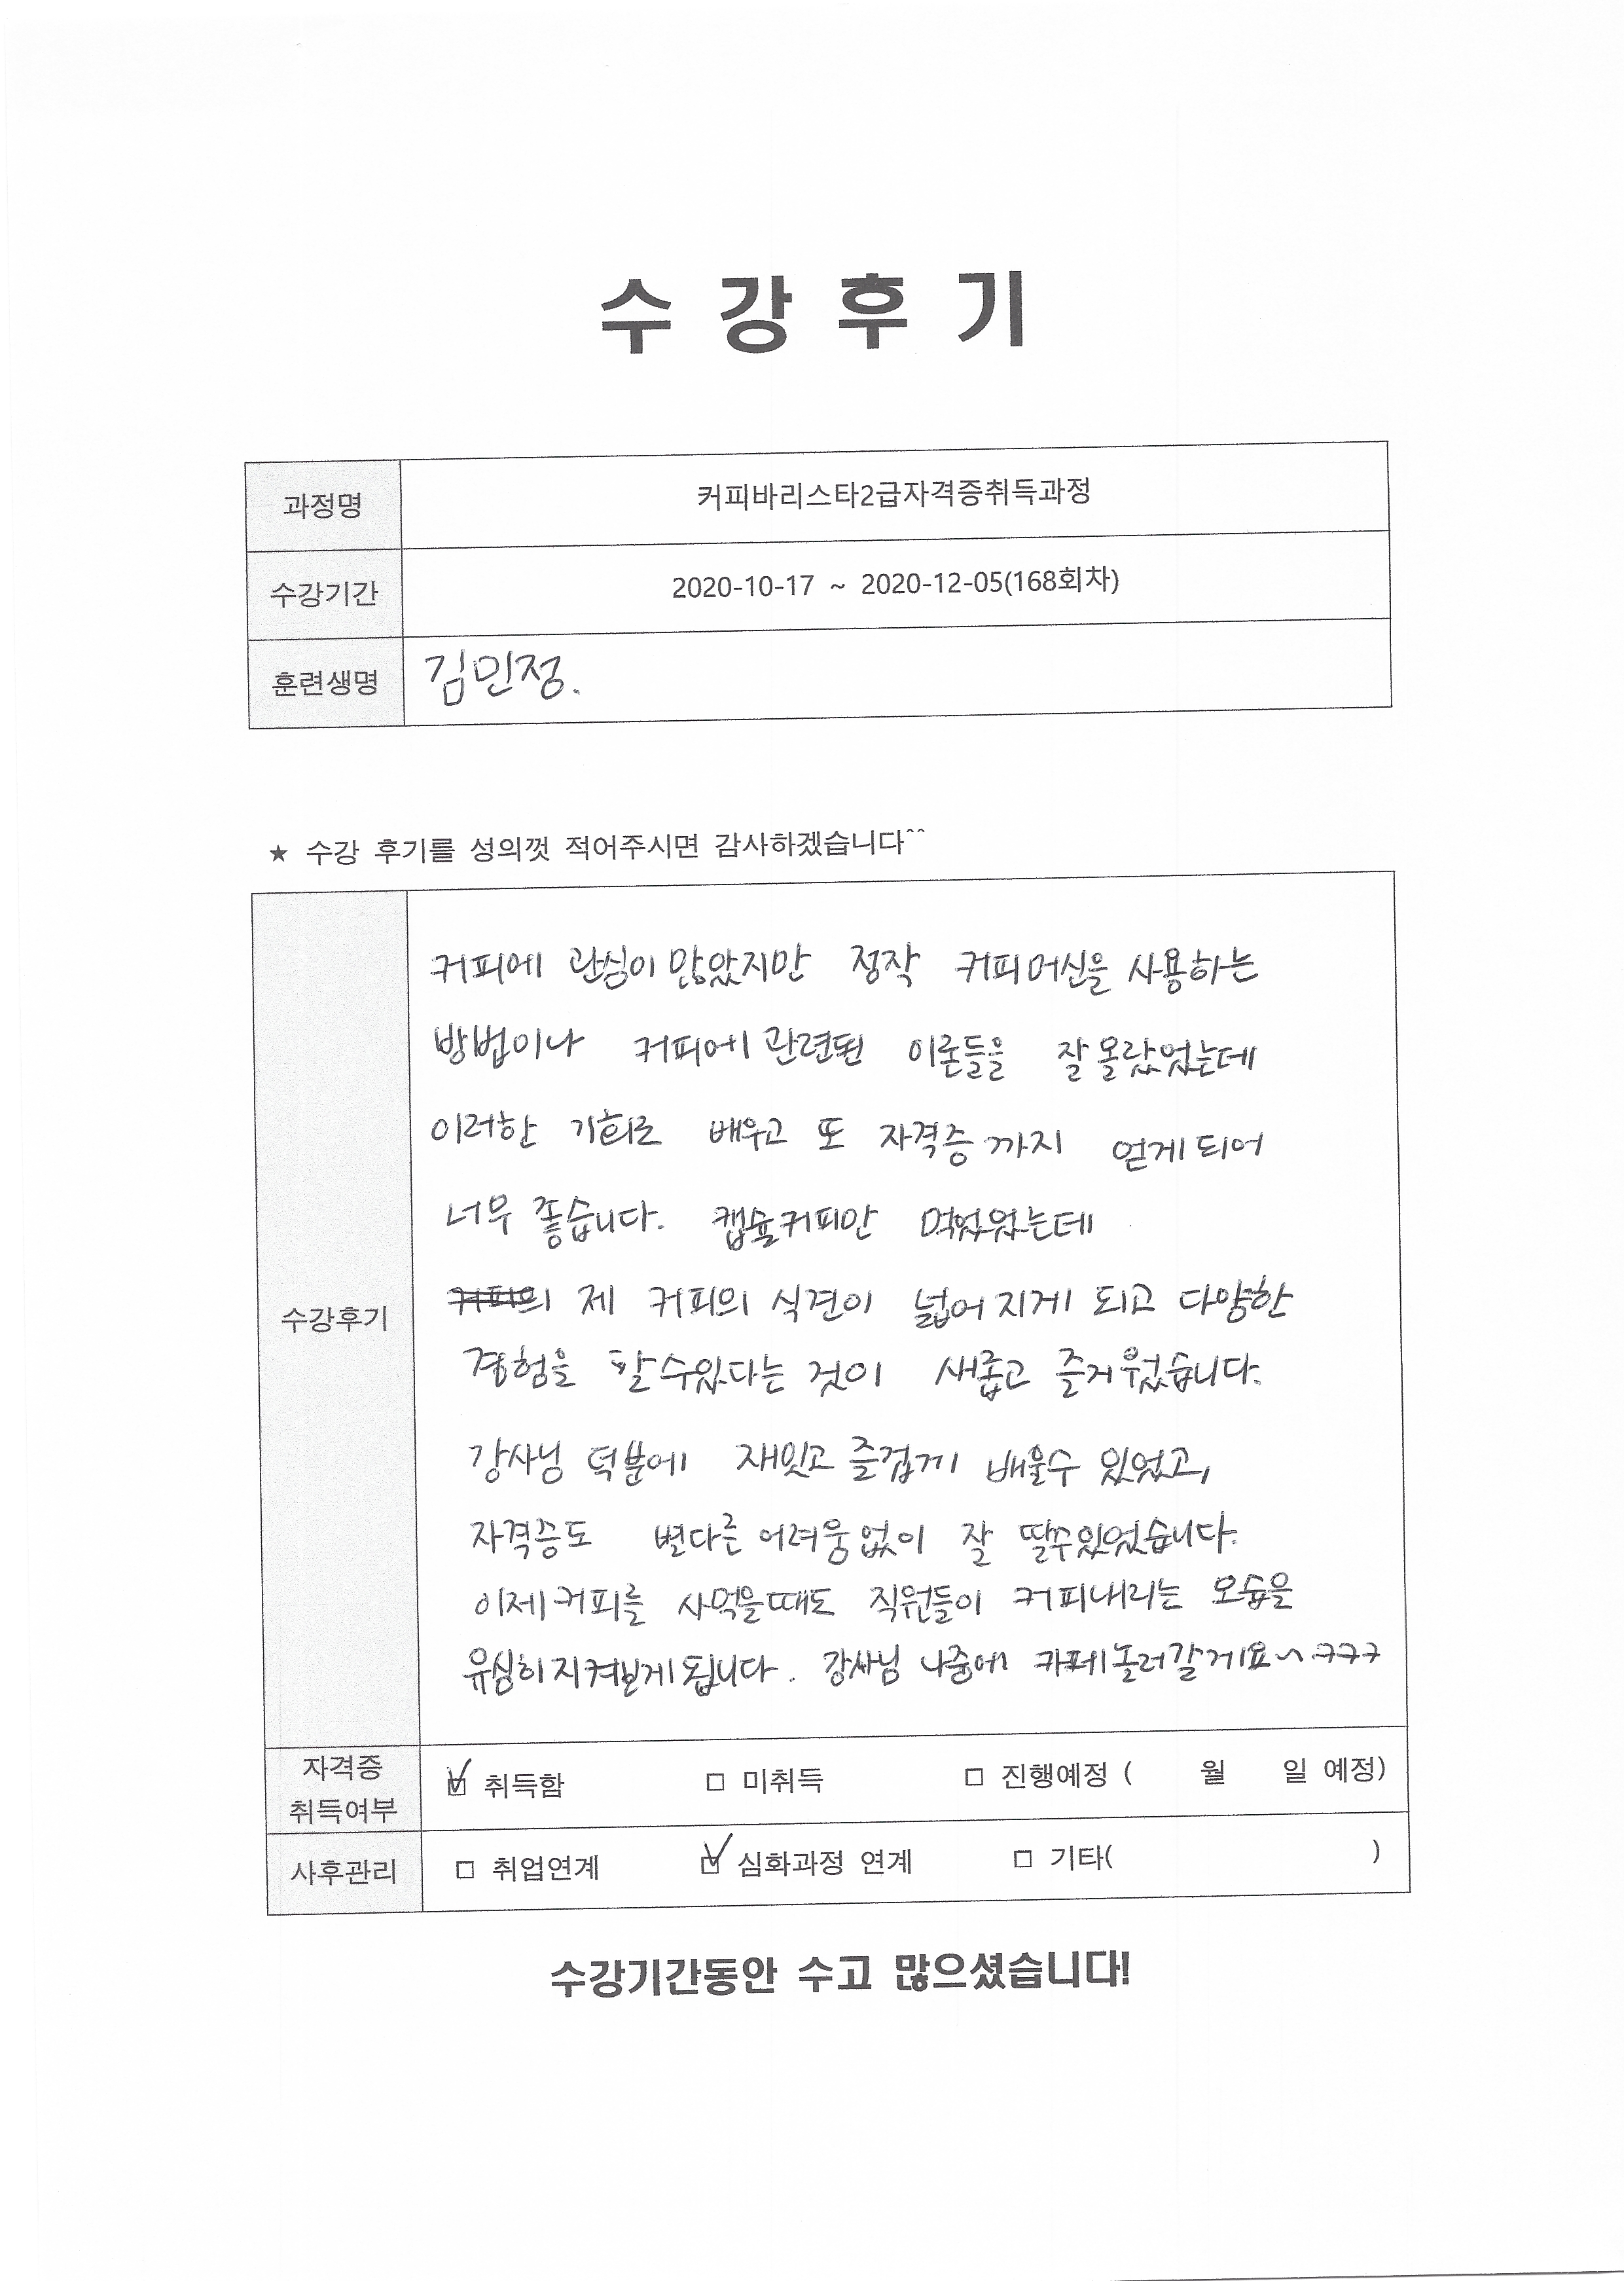 수 강 후 기
과정명 커피바리스타2급자격증취득과정
수강기간 2020-10-17 ~ 2020-12-05(168회차)
훈련생명 김민정.
★ 수강 후기를 성의껏 적어주시면 감사하겠습니다^^
커피에 관심이 많았지만 정작 커피머신을 사용하는
방법이나 커피에 관련된 이론들을 잘 몰랐었는데
이러한 기회로 배우고 또 자격증까지 얻게되어
너무 좋습니다. 캡슐커피만 먹었었는데
수강후기
커피의 제 커피의 식견이 넓어지게 되고 다양한
경험을 할수있다는 것이 새롭고 즐거웠습니다.
강사님 덕분에 재밌고 즐겁게 배울수 있었고,
자격증도 별다른 어려움없이 잘 딸수있었습니다.
이제 커피를 사먹을때도 직원들이 커피내리는 모습을
유심히 지켜보게됩니다. 강사님 나중에 카페놀러갈게요~ ㅋㅋㅋ
자격증 취득여부 ☑ 취득함 □ 미취득 □ 진행예정 ( 월 일 예정)
사후관리 □ 취업연계 ☑ 심화과정 연계 □ 기타( )
수강기간동안 수고 많으셨습니다!